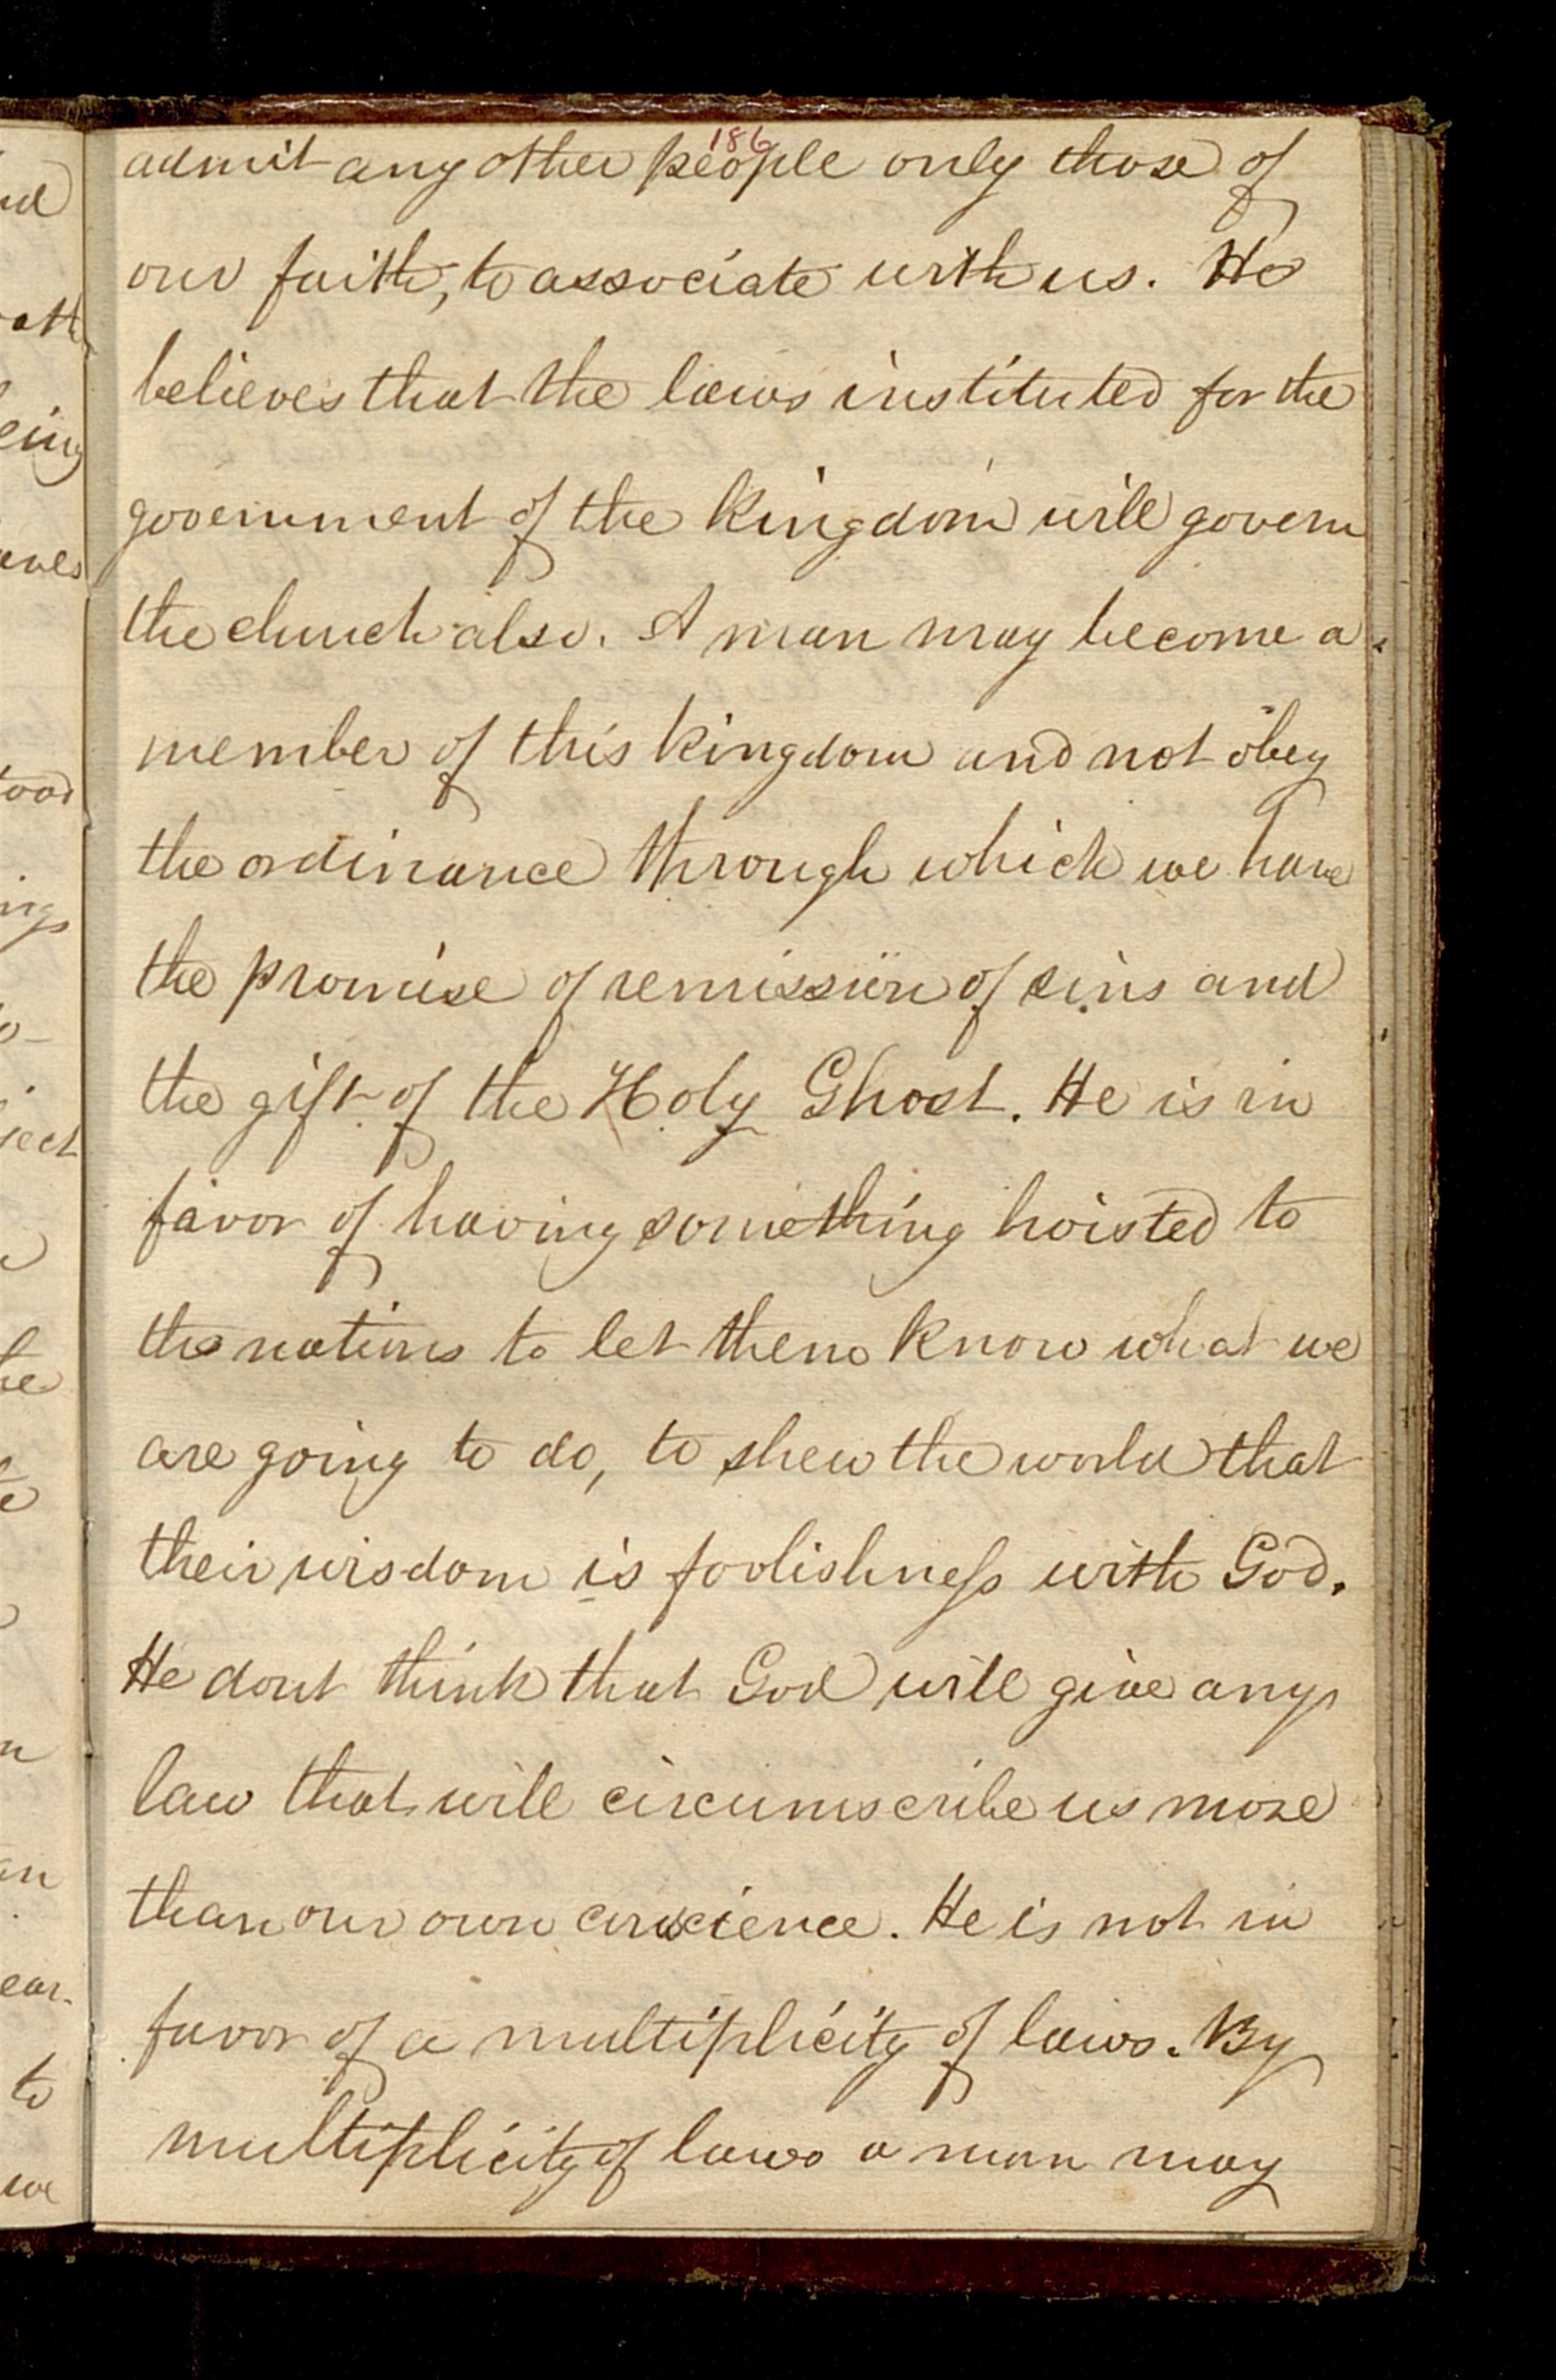 186
admit any other people only those of
our faith, to associate with us. He
believes that the laws instituted for the
government of the kingdom will govern
the church also. A man may become a
member of this kingdom and not obey
the ordinance through which we have
the promise of remission of sins and
the gift of the Holy Ghost. He is in
favor of having something hoisted to
the nations to let them know what we
are going to do, to shew the world that
their wisdom is foolishness with God.
He dont think that God will give any
law that will circumscribe us more
than our own conscience. He is not in
favor of a multiplicity of laws. By
multiplicity of laws a man may